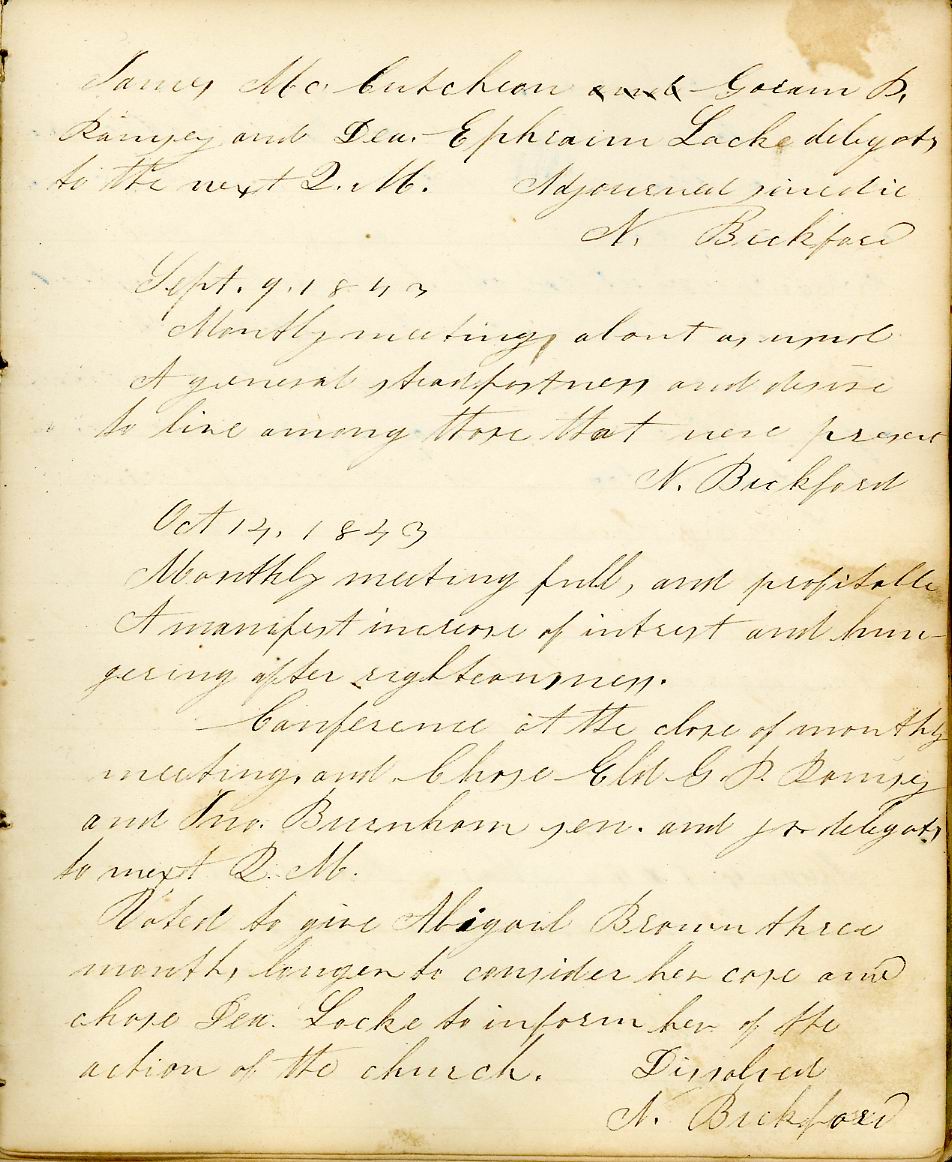 James Mc Cutcheon and Goram P.
Ramsey and Dea. Ephraim Locke delegats
to the next Q. M. Adjourned sinedie
N. Bickford
Sept. 9. 1843
Monthly meeting, about as usual
A general steadfastness and desire
to live among those that were present
N. Bickford
Oct 14. 1843
Monthly meeting full, and profitable
A manifest increse of intrest and hun-
gering after righteousness.
Conference at the close of monthly
meeting, and Chose Eld G. P. Ramsey
and Jno. Burnham sen. and jr delegats
to next Q. M.
Voted to give Abigail Brown three
months longer to consider her case and
chose Dea. Locke to inform her of the
action of the church. Dissolved
N. Bickford